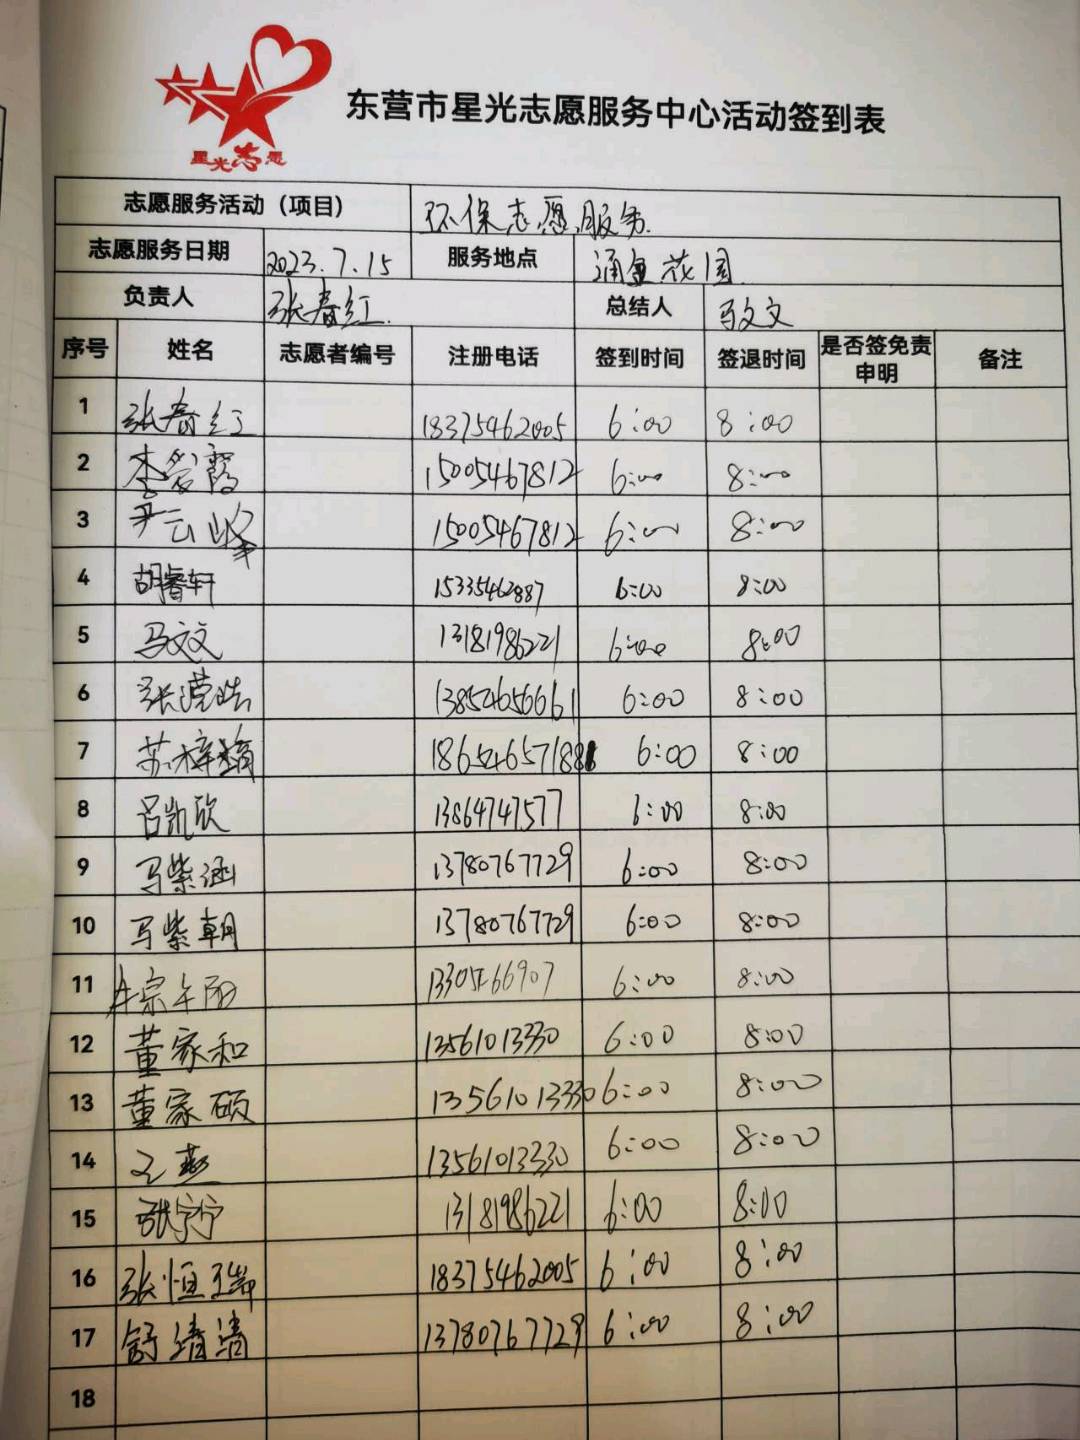 星光志愿
东营市星光志愿服务中心活动签到表
志愿服务活动（项目） 环保志愿服务.
志愿服务日期 2023.7.15 服务地点 通金花园.
负责人 张春红. 总结人 马文文
序号 姓名 志愿者编号 注册电话 签到时间 签退时间 是否签免责申明 备注
1 张春红 18375462005 6:00 8:00
2 李爱霞 15005467812 6:00 8:00
3 尹云峰 15005467812 6:00 8:00
4 胡睿轩 15335462887 6:00 8:00
5 马文文 13181986221 6:00 8:00
6 张滢皓 13854656661 6:00 8:00
7 苏梓 6:00 8:00
8 吕凯欣 13864747577 6:00 8:00
9 马紫涵 13780767729 6:00 8:00
10 马紫朝 13780767729 6:00 8:00
11 6:00 8:00
12 董家和 13561013330 6:00 8:00
13 董家硕 13561013330 6:00 8:00
14 王燕 13561013330 6:00 8:00
15 张宁宁 13181986221 6:00 8:00
16 张恒瑞 18375462005 6:00 8:00
17 舒靖清 13780767729 6:00 8:00
18